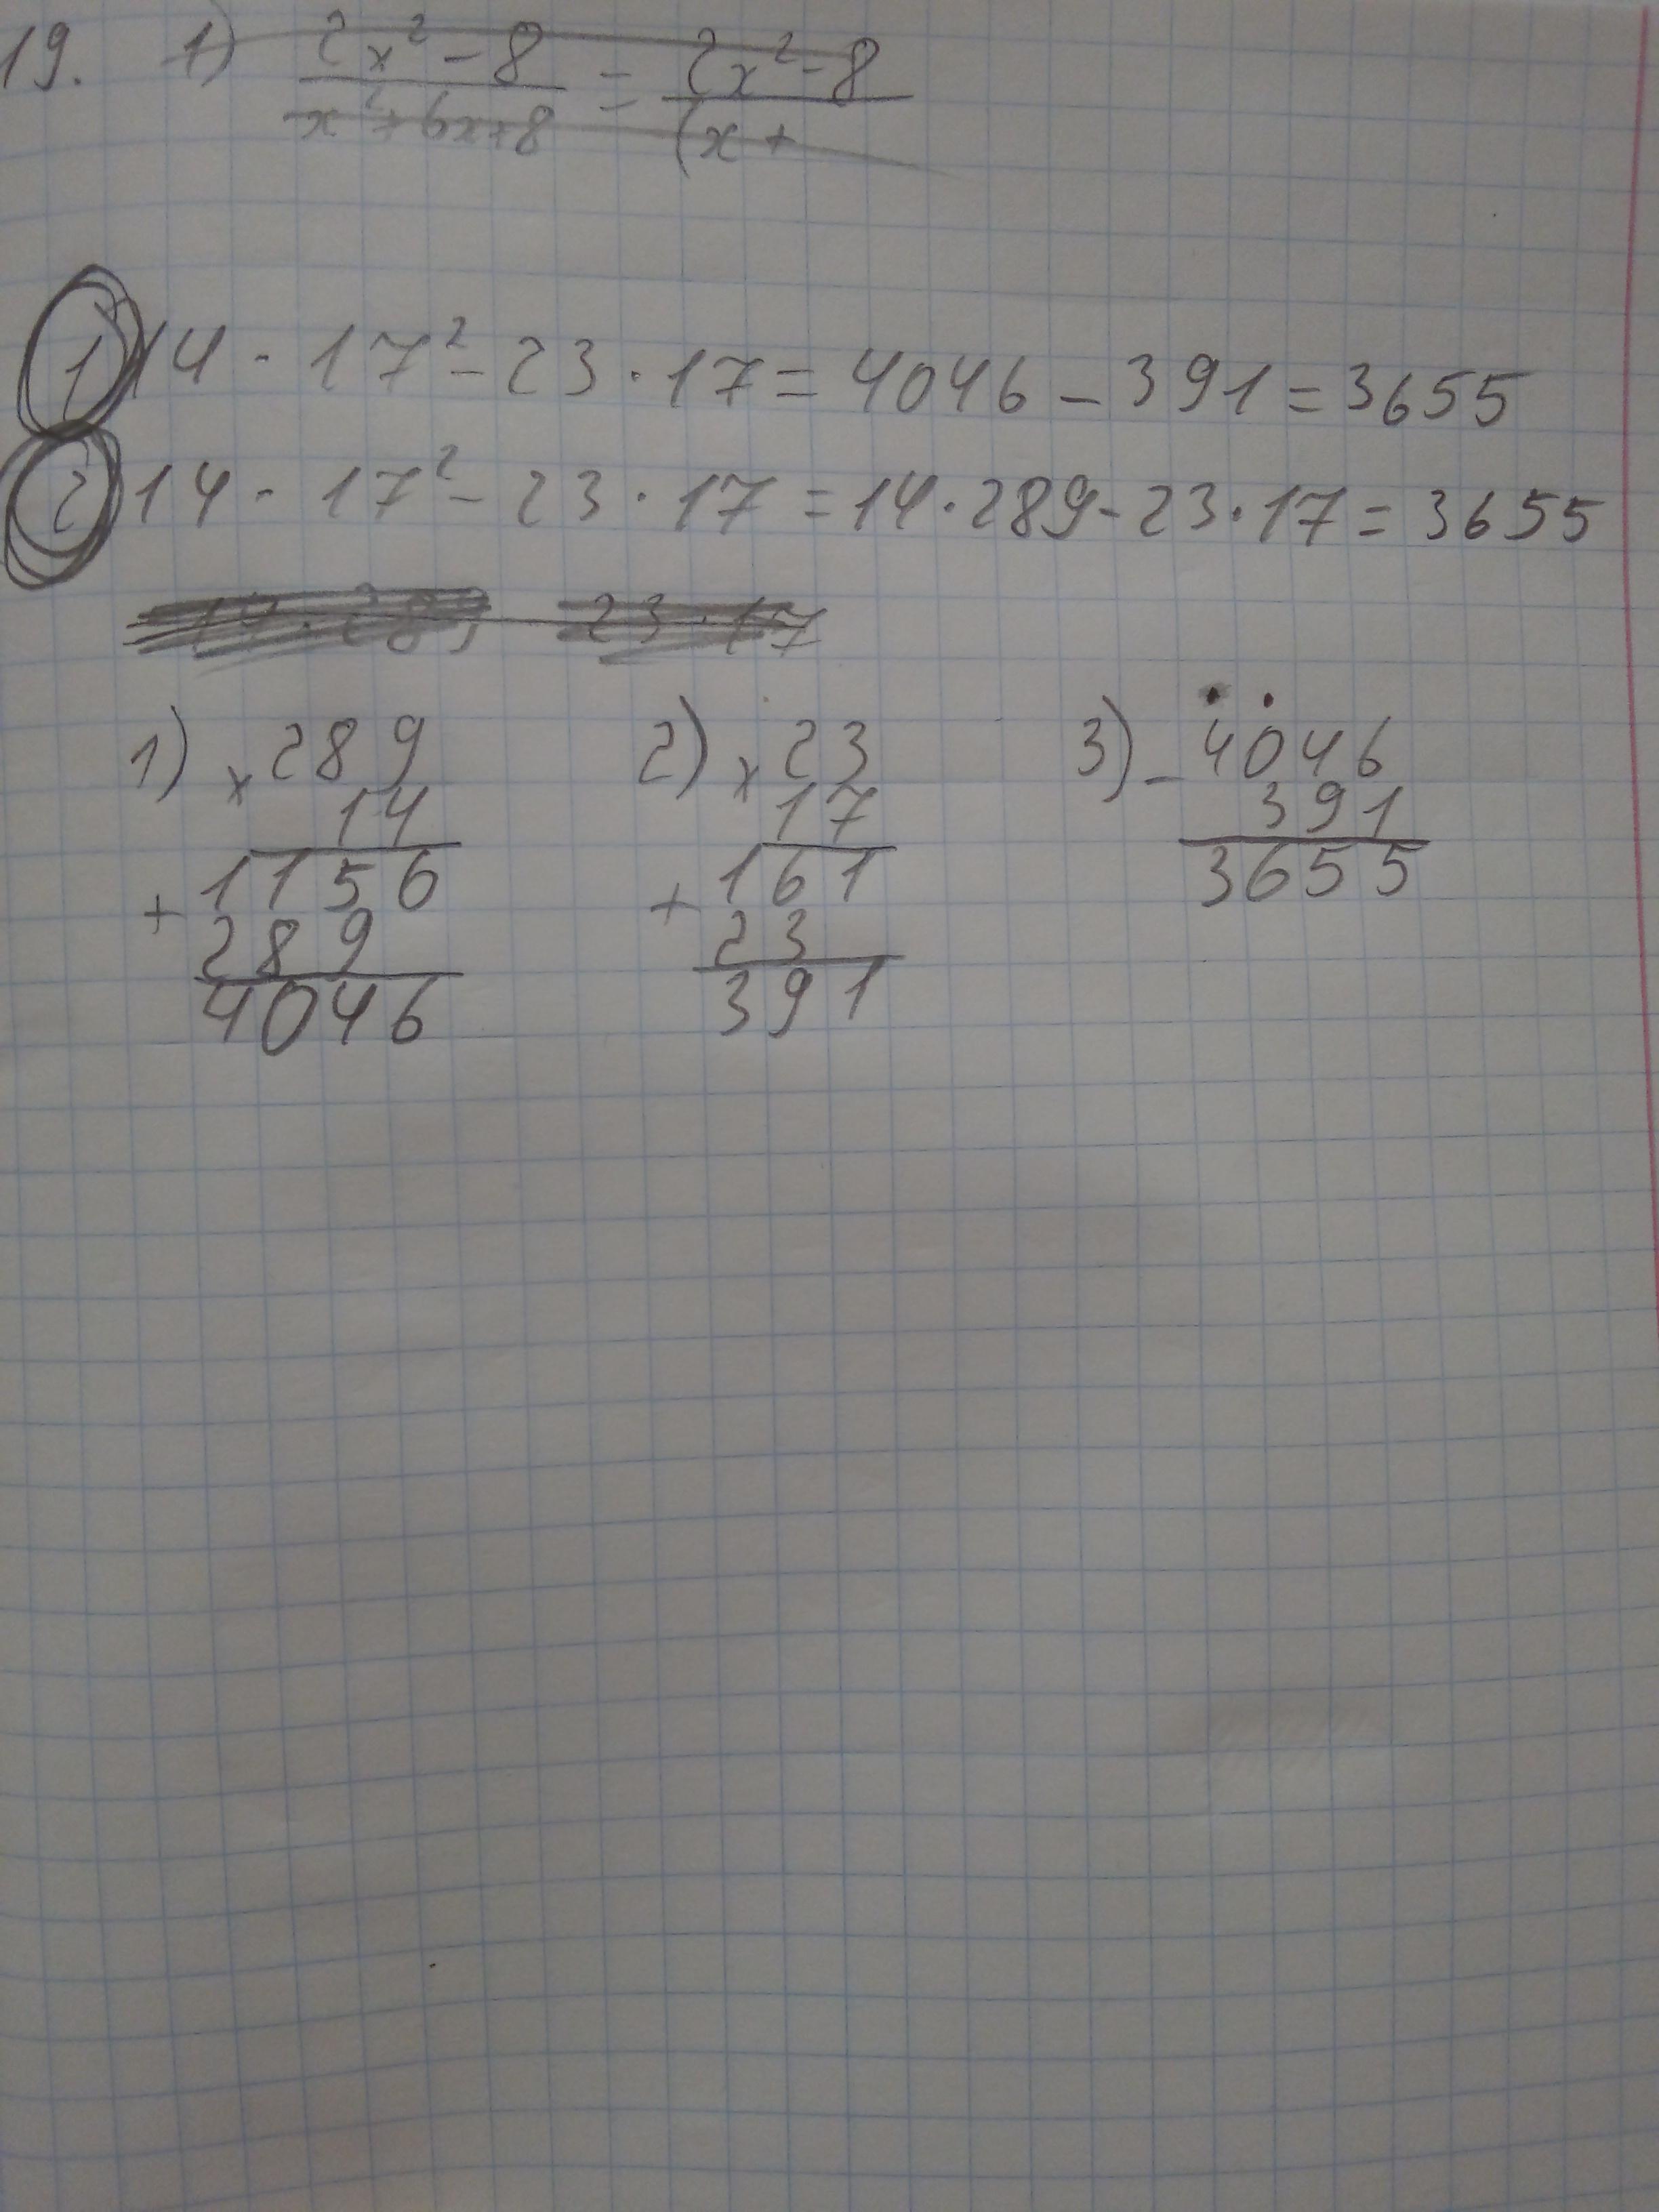 19. 1) 2x² - 8 / x² + 6x + 8 = 2x² - 8 / (x +
1) 14 · 17² - 23 · 17 = 4046 - 391 = 3655
2) 14 · 17² - 23 · 17 = 14 · 289 - 23 · 17 = 3655
14 · 289 - 23 · 17
1) × 289
14
+ 1156
289
4046
2) × 23
17
+ 161
23
391
3) - 4046
391
3655